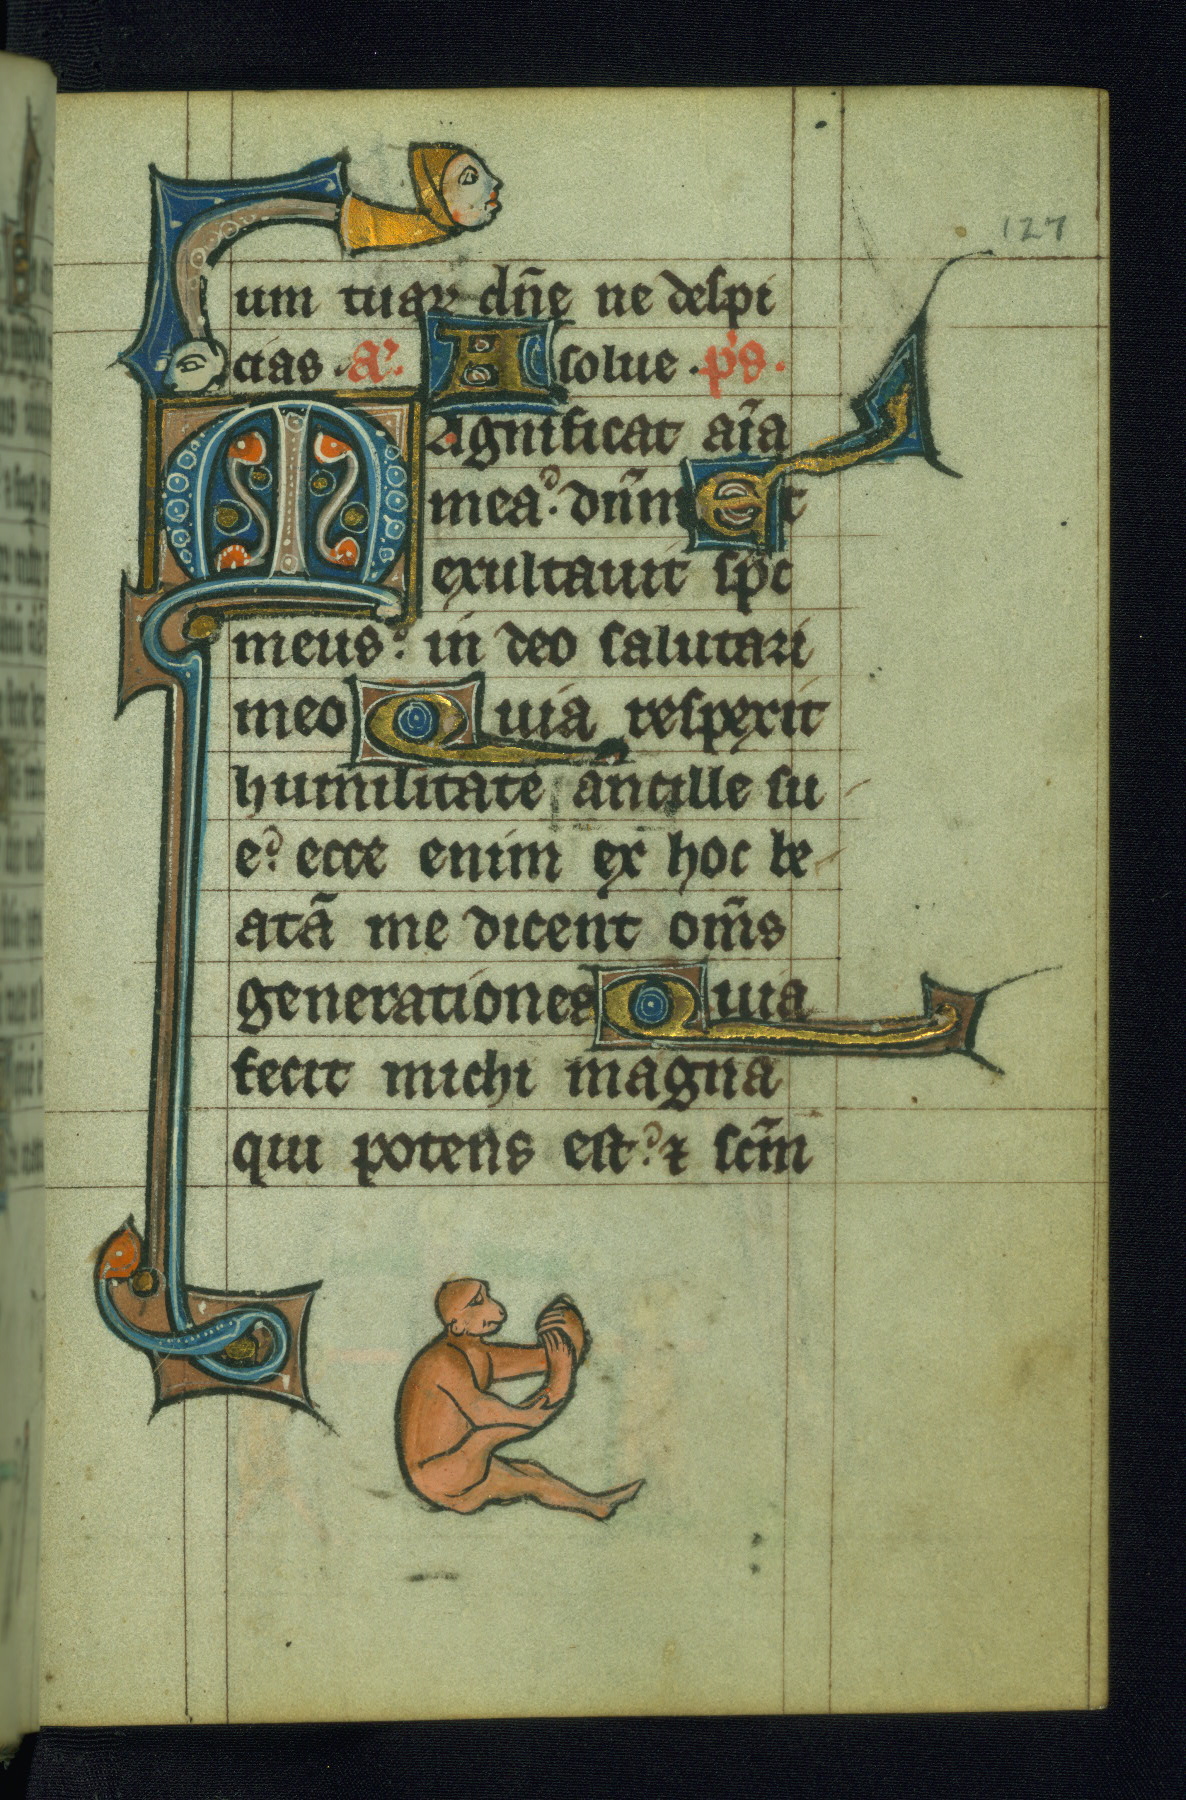 127
um tuaꝝ dñe ne deſpi
cias. a'. A ſolue. ps.
Magnificat aĩa
mea: dñm Et
exultauit spc
meus: in deo salutari
meo Quia respexit
humilitatē ancille su
e: ecce enim ex hoc be
atā me dicent om̃s
generationes Quia
fecit michi magna
qui potens est: ⁊ scm̃